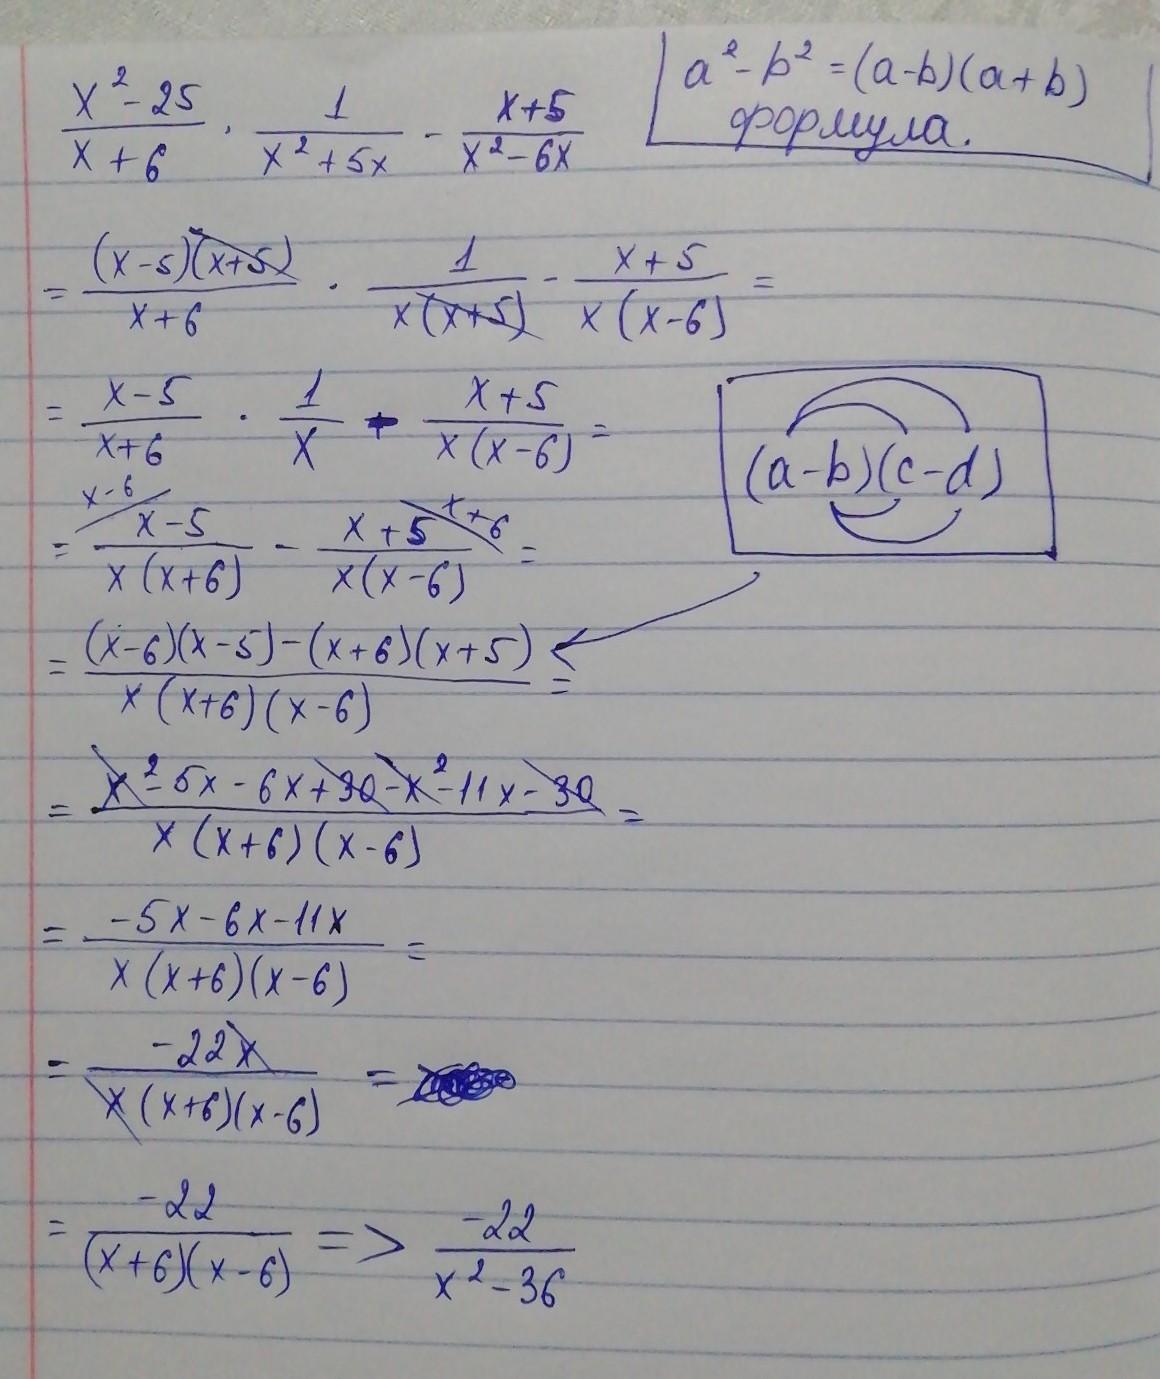 x²-25/x+6 · 1/x²+5x - x+5/x²-6x
a²-b²=(a-b)(a+b)
формула.
= (x-5)(x+5)/x+6 · 1/x(x+5) - x+5/x(x-6) =
= x-5/x+6 · 1/x - x+5/x(x-6) =
(a-b)(c-d)
x-6 x+6
= x-5/x(x+6) - x+5/x(x-6) =
= (x-6)(x-5)-(x+6)(x+5)/x(x+6)(x-6) =
= x²-5x-6x+30-x²-11x-30/x(x+6)(x-6) =
= -5x-6x-11x/x(x+6)(x-6) =
= -22x/x(x+6)(x-6) =
= -22/(x+6)(x-6) => -22/x²-36